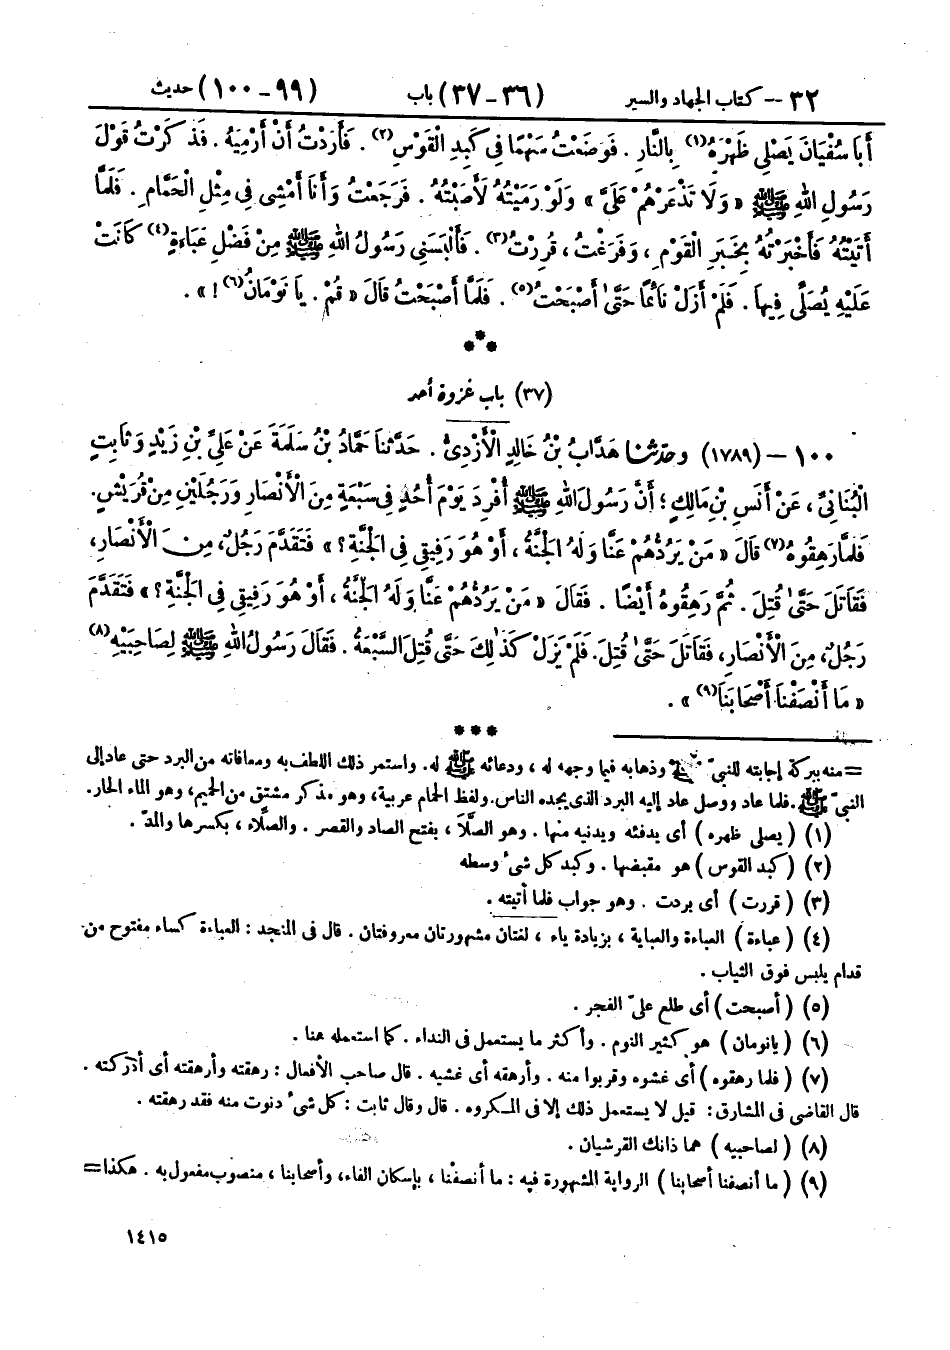 ٣٢ – كتاب الجهاد والسير (٣٦-٣٧) باب (٩٩-١٠٠) حديث
أَبَا سُفْيَانَ يَصْلِي ظَهْرَهُ(١) بِالنَّارِ . فَوَضَعْتُ سَهْمًا فِي كَبِدِ الْقَوْسِ(٢) . فَأَرَدْتُ أَنْ أَرْمِيَهُ . فَذَكَرْتُ قَوْلَ
رَسُولِ اللهِ ﷺ « وَلَا تَذْعَرْهُمْ عَلَيَّ » وَلَوْ رَمَيْتُهُ لَأَصَبْتُهُ . فَرَجَعْتُ وَأَنَا أَمْشِي فِي مِثْلِ الْحَمَّامِ . فَلَمَّا
أَتَيْتُهُ فَأَخْبَرْتُهُ بِخَبَرِ الْقَوْمِ ، وَفَرَغْتُ ، قُرِرْتُ(٣) . فَأَلْبَسَنِي رَسُولُ اللهِ ﷺ مِنْ فَضْلِ عَبَاءَةٍ(٤) كَانَتْ
عَلَيْهِ يُصَلِّي فِيهَا . فَلَمْ أَزَلْ نَائِمًا حَتَّىٰ أَصْبَحْتُ(٥) . فَلَمَّا أَصْبَحْتُ قَالَ « قُمْ . يَا نَوْمَانُ(٦) ! » .
***
(٣٧) باب غزوة أحد
١٠٠ – (١٧٨٩) وحَدَّثَنَا هَدَّابُ بْنُ خَالِدٍ الْأَزْدِيُّ . حَدَّثَنَا حَمَّادُ بْنُ سَلَمَةَ عَنْ عَلِيِّ بْنِ زَيْدٍ وَثَابِتٍ
الْبُنَانِيِّ ، عَنْ أَنَسِ بْنِ مَالِكٍ ؛ أَنَّ رَسُولَ اللهِ ﷺ أُفْرِدَ يَوْمَ أُحُدٍ فِي سَبْعَةٍ مِنَ الْأَنْصَارِ وَرَجُلَيْنِ مِنْ قُرَيْشٍ.
فَلَمَّا رَهِقُوهُ(٧) قَالَ « مَنْ يَرُدُّهُمْ عَنَّا وَلَهُ الْجَنَّةُ ، أَوْ هُوَ رَفِيقِي فِي الْجَنَّةِ ؟ » فَتَقَدَّمَ رَجُلٌ، مِنَ الْأَنْصَارِ،
فَقَاتَلَ حَتَّىٰ قُتِلَ . ثُمَّ رَهِقُوهُ أَيْضًا . فَقَالَ « مَنْ يَرُدُّهُمْ عَنَّا وَلَهُ الْجَنَّةُ ، أَوْ هُوَ رَفِيقِي فِي الْجَنَّةِ ؟ » فَتَقَدَّمَ
رَجُلٌ، مِنَ الْأَنْصَارِ، فَقَاتَلَ حَتَّىٰ قُتِلَ. فَلَمْ يَزَلْ كَذَٰلِكَ حَتَّىٰ قُتِلَ السَّبْعَةُ . فَقَالَ رَسُولُ اللهِ ﷺ لِصَاحِبَيْهِ(٨)
« مَا أَنْصَفْنَا أَصْحَابَنَا(٩) » .
***
= منه ببركة إجابته للنبيّ ﷺ وذهابه فيما وجهه له ، ودعائه ﷺ له. واستمر ذلك اللطف به ومعافاته من البرد حتى عاد إلى
النبيّ ﷺ. فلما عاد ووصل عاد إليه البرد الذى يجده الناس. ولفظ الحمام عربية، وهو مذكر مشتق من الحميم، وهو الماء الحار.
(١) ( يصلى ظهره ) أى يدفئه ويدنيه منها . وهو الصَّلَا ، بفتح الصاد والقصر . والصلاء ، بكسرها والمدّ .
(٢) ( كبد القوس ) هو مقبضها . وكبد كل شىء وسطه
(٣) ( قررت ) أى بردت . وهو جواب فلما أتيته .
(٤) ( عباءة ) العباءة والعباية ، بزيادة ياء ، لغتان مشهورتان معروفتان . قال فى المنجد : العباءة كساء مفتوح من
قدام يلبس فوق الثياب .
(٥) ( أصبحت ) أى طلع علىّ الفجر .
(٦) ( يانومان ) هو كثير النوم . وأكثر ما يستعمل فى النداء . كما استعمله هنا .
(٧) ( فلما رهقوه ) أى غشوه وقربوا منه . وأرهقه أى غشيه . قال صاحب الأفعال : رهقته وأرهقته أى أدركته .
قال القاضى فى المشارق : قيل لا يستعمل ذلك إلا فى المكروه . قال وقال ثابت : كل شىء دنوت منه فقد رهقته .
(٨) ( لصاحبيه ) هما ذانك القرشيان .
(٩) ( ما أنصفنا أصحابنا ) الرواية المشهورة فيه : ما أنصفْنا ، بإسكان الفاء، وأصحابنا ، منصوب مفعول به . هكذا =
١٤١٥